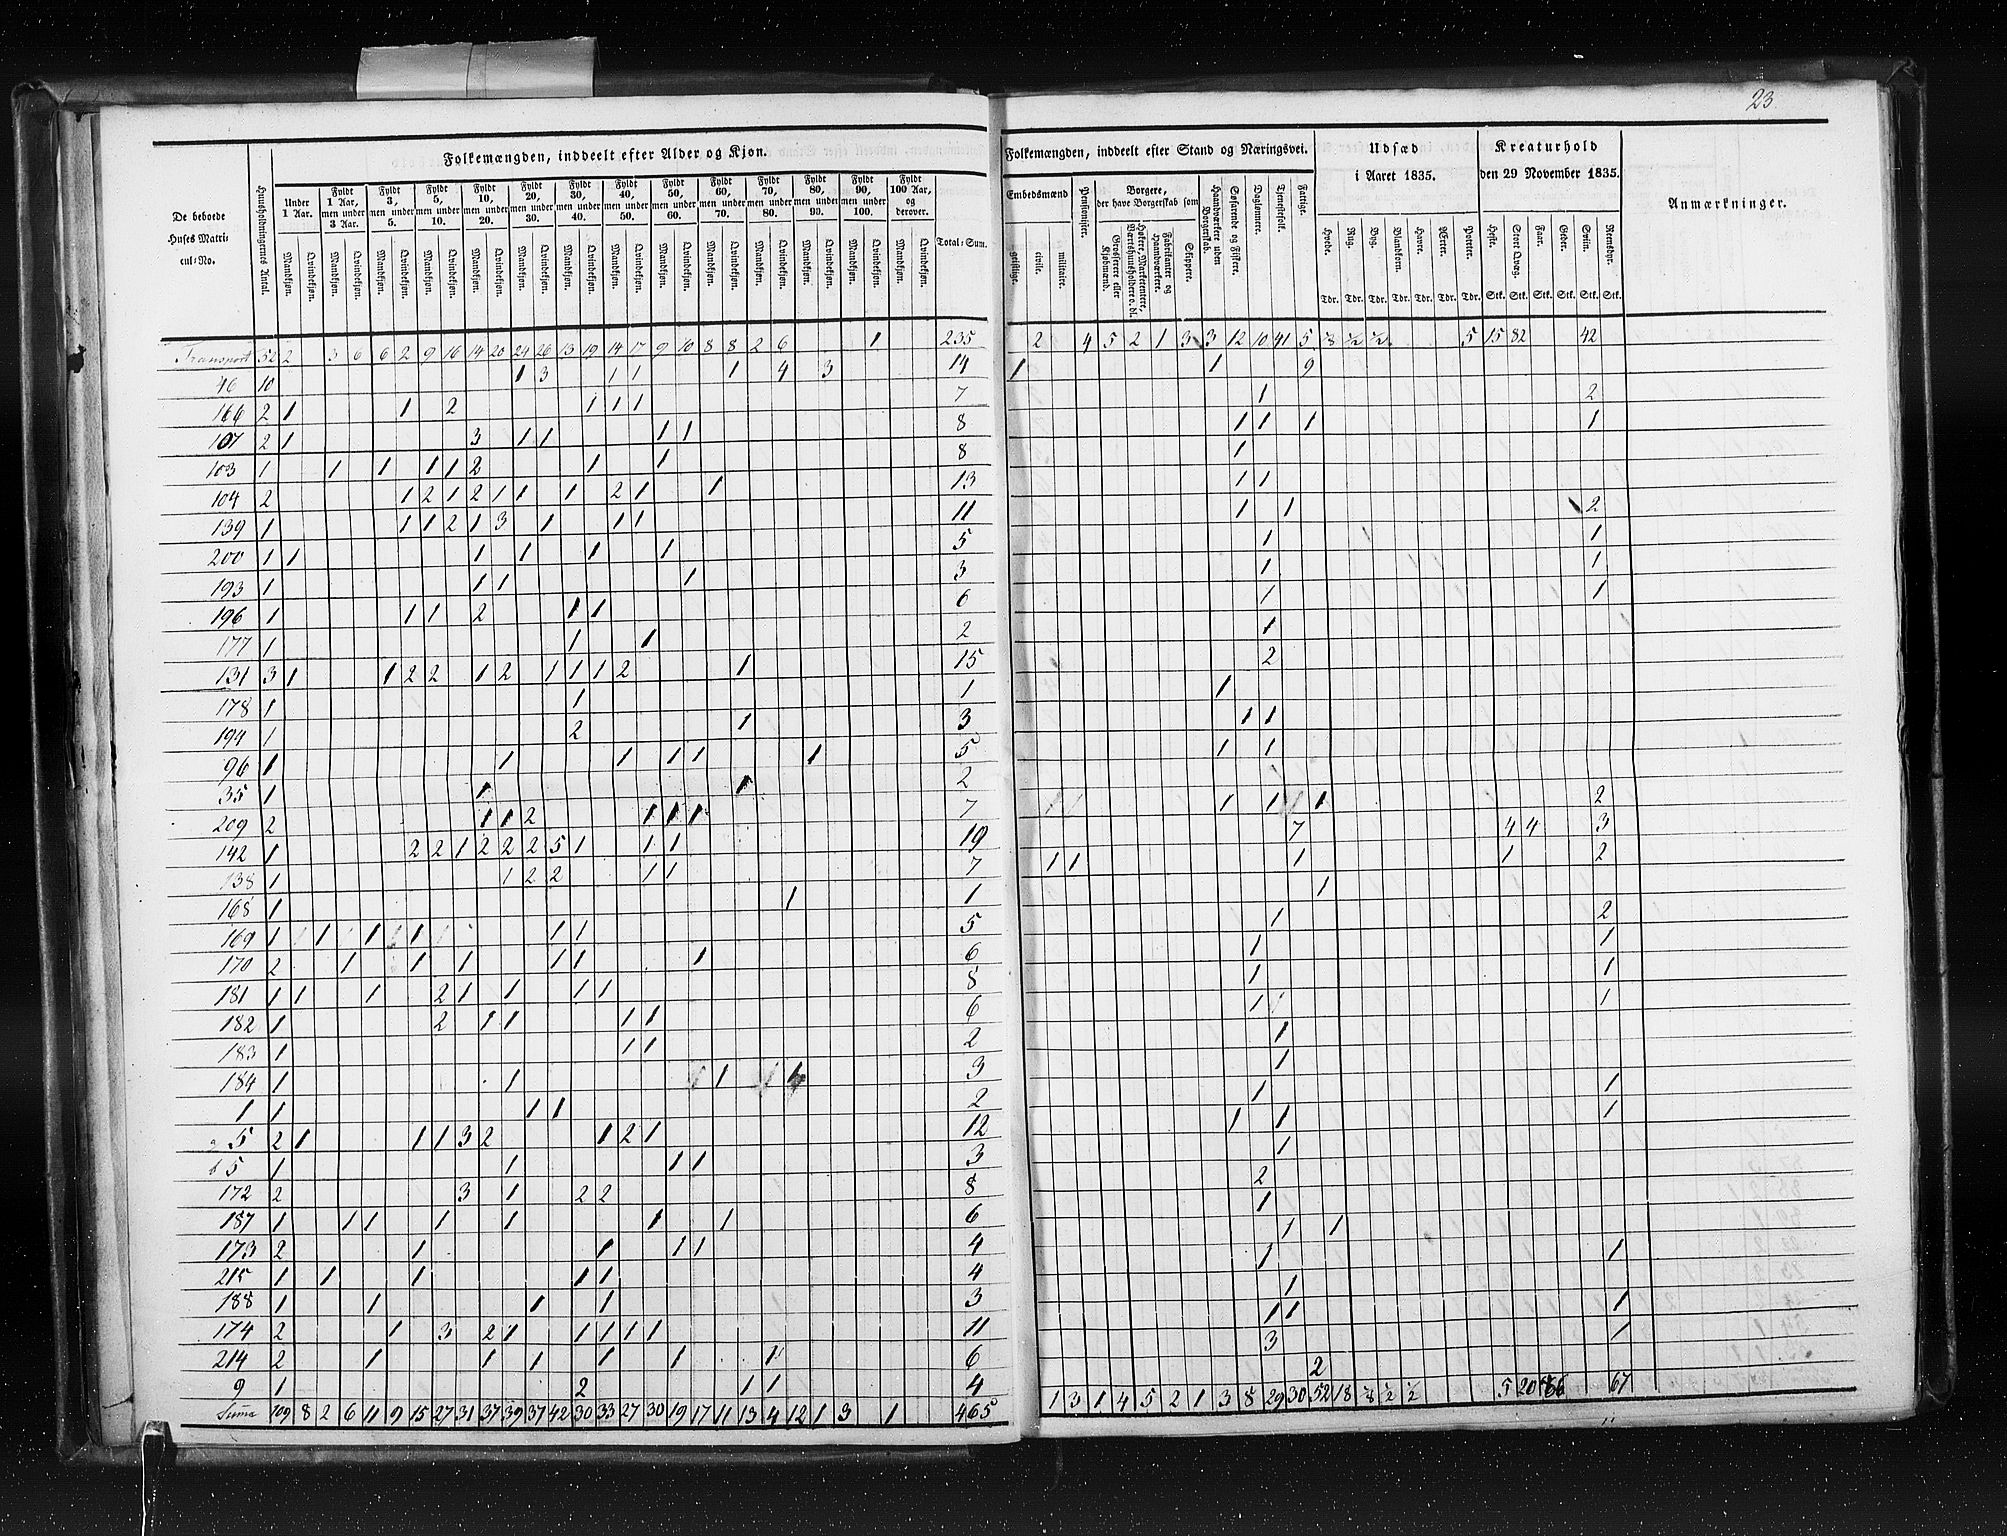 23
Folkemængden, inddeelt efter Alder og Kjøn.
Folkemængden, inddeelt efter Stand og Næringsvei.
Udsæd i Aaret 1835.
Kreaturhold den 29 November 1835.
Anmærkninger.
De beboede Huses Matricul-No.
Huusholdningernes Antal.
Under 1 Aar.
Fyldt 1 Aar, men under 3 Aar.
Fyldt 3, men under 5.
Fyldt 5, men under 10.
Fyldt 10, men under 20.
Fyldt 20, men under 30.
Fyldt 30, men under 40.
Fyldt 40, men under 50.
Fyldt 50, men under 60.
Fyldt 60, men under 70.
Fyldt 70, men under 80.
Fyldt 80, men under 90.
Fyldt 90, men under 100.
Fyldt 100 Aar, og derover.
Mandkjøn. Qvindekjøn.
Total-Sum.
Embedsmænd
geistlige. civile. militaire.
Pensionister.
Borgere, der have Borgerskab som
Grosserere eller Kjøbmænd.
Høkere, Marketentere, Værtshuusholdere o. dl.
Fabrikanter og Haandværkere.
Skippere.
Haandværkere uden Borgerskab.
Søfarende og Fiskere.
Daglønnere.
Tjenestefolk.
Fattige.
Hvede. Rug. Byg. Blandkorn. Havre. Ærter. Poteter.
Tdr. Tdr. Tdr. Tdr. Tdr. Tdr. Tdr.
Heste. Stort Qvæg. Faar. Geder. Sviin. Rensdyr.
Stk. Stk. Stk. Stk. Stk. Stk.
Transport 52 2 3 6 6 2 9 16 14 20 24 26 13 19 14 17 9 10 8 8 2 6 1 235 2 4 5 2 1 3 3 12 10 41 5 1/8 1/2 1/2 5 15 82 42
46 10 1 3 1 1 1 4 3 14 1 1 9
166 2 1 1 2 1 1 1 7 1 2
107 2 1 3 1 1 1 1 8 1 1 1 1
103 1 1 1 1 1 2 1 1 8 1
104 2 1 2 1 2 1 1 1 2 1 1 13 1 1
139 1 1 1 2 1 3 1 1 1 11 1 1 2
200 1 1 1 1 1 1 5 1 1
193 1 1 1 1 3 1 1
196 1 1 1 2 1 1 6 1 1
177 1 1 1 2 1
131 3 1 1 2 2 1 2 1 1 1 2 1 15 2
178 1 1 1 1
194 1 2 1 3 1 1
96 1 1 1 1 1 1 5 1 1
35 1 1 1 2
209 2 1 1 2 1 1 1 7 1 1 1 2
142 1 2 2 1 2 2 2 5 1 1 1 19 7 4 4 3
138 1 1 2 2 1 1 7 1 1 1 1 2
168 1 1 1 1
169 1 1 1 1 1 1 5 1 2
170 2 1 1 1 1 1 1 6 1 1
181 1 1 1 2 1 1 1 1 8 1 1
182 1 2 1 1 1 1 6 1 1 1
183 1 1 1 2 1
184 1 1 1 1 3 1
1 1 1 1 2 1 1
a 5 2 1 1 1 3 2 1 2 1 12 1 1 1
b 5 1 1 1 1 3 1
172 2 3 1 2 2 8 2
187 1 1 1 1 1 1 1 6 1
173 2 1 1 1 1 4 1 1
215 1 1 1 1 1 4 1 1
188 1 1 1 1 3 1
174 2 1 3 2 1 1 1 1 1 11 1 1 1
214 2 1 1 1 1 1 1 6 3 1
9 1 2 1 1 4 2
Suma 109 8 2 6 11 9 15 27 31 37 39 37 42 30 33 27 30 19 17 11 13 4 12 1 3 1 465 1 3 1 4 5 2 1 3 8 29 30 52 18 1/8 1/2 1/2 5 20 86 67